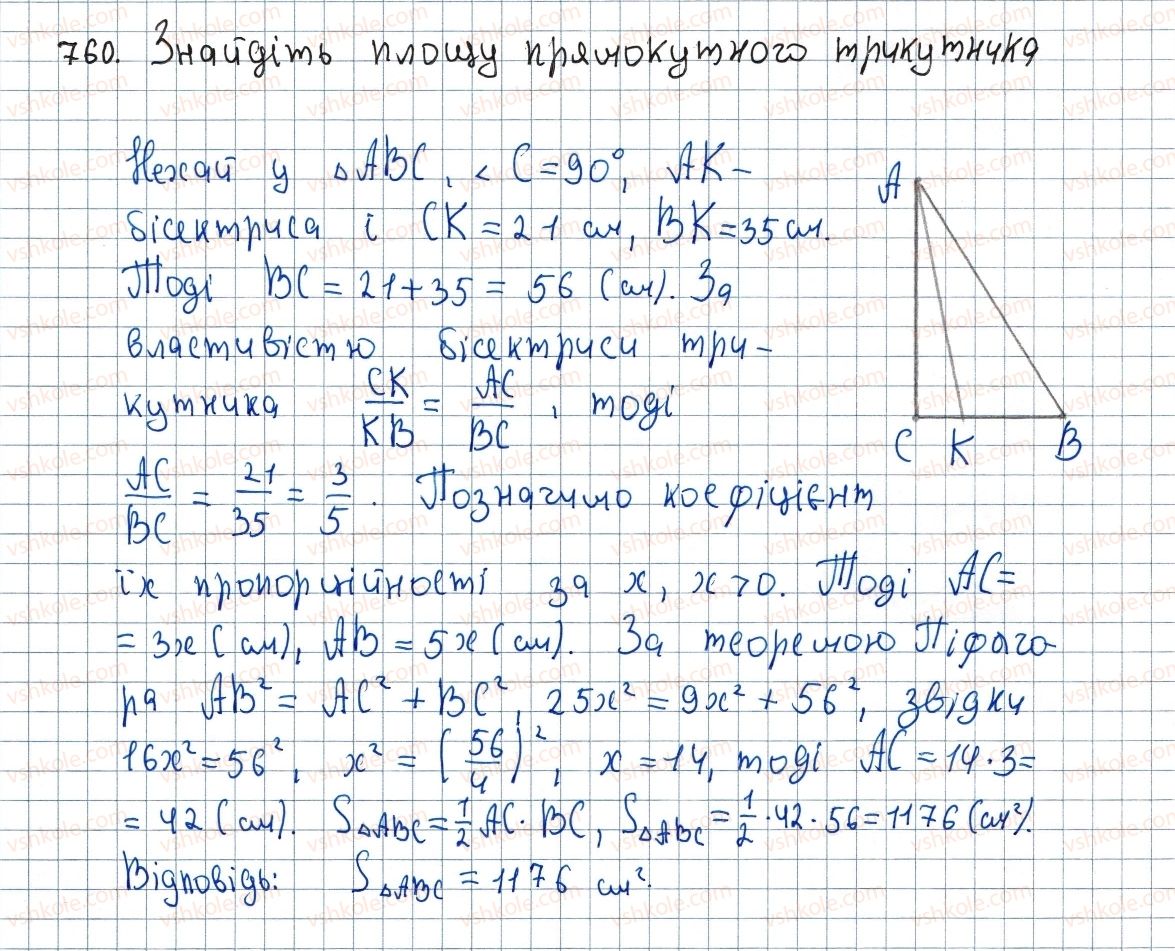 760. Знайдіть площу прямокутного трикутника
Нехай у △ABC, < C = 90°, AK –
бісектриса і CK = 21 см, BK = 35 см.
Тоді BC = 21 + 35 = 56 (см). За
властивістю бісектриси три–
кутника CK/KB = AC/BC, тоді
AC/BC = 21/35 = 3/5. Позначимо коефіцієнт
їх пропорційності за x, x > 0. Тоді AC =
= 3x (см), AB = 5x (см). За теоремою Піфаго-
ра AB² = AC² + BC², 25x² = 9x² + 56², звідки
16x² = 56², x² = (56/4)², x = 14, тоді AC = 14 · 3 =
= 42 (см). S△ABC = 1/2 AC · BC, S△ABC = 1/2 · 42 · 56 = 1176 (см²).
Відповідь: S△ABC = 1176 см².
A
C K B
vshkole.com